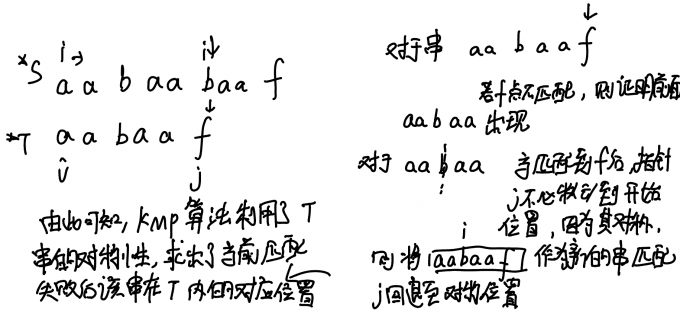 i→ i↓
*S a a b aa baa f
*T a a b a a f
j
由此可知，KMP算法利用了T
串的对称性，求出了当前匹配
失败后该串在T内的对应位置
对于串 aa b a a f
若f点不匹配，则证明前面
aabaa 出现
对于 aabaa 当匹配到f后，指针
j不必移动到开始
i 位置，因为其对称，
则将 aabaaf 作为新的串匹配
j回退至对称位置